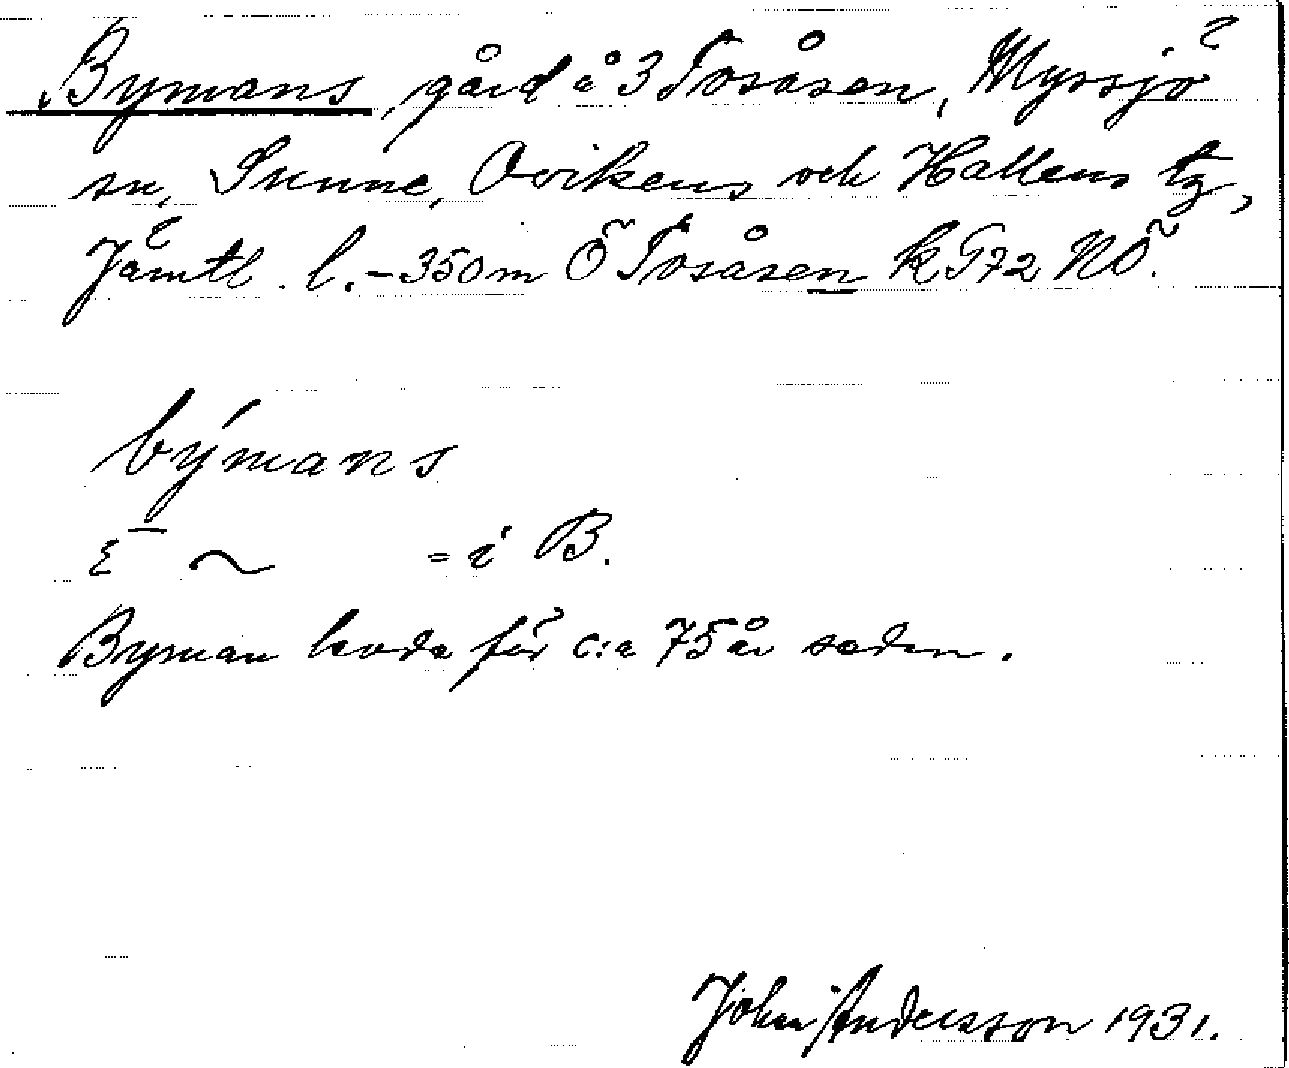 Bymans, gård å 3 Tosåsen, Myssjö
sn, Sunne, Ovikens och Hallens tg,
Jämtl. l. – 350 m Ö Tosåsen k 572 NÖ.
býmans
ɛ̄ ~ = i B.
Byman levde för c:a 75 år sedan.
John Andersson 1931.